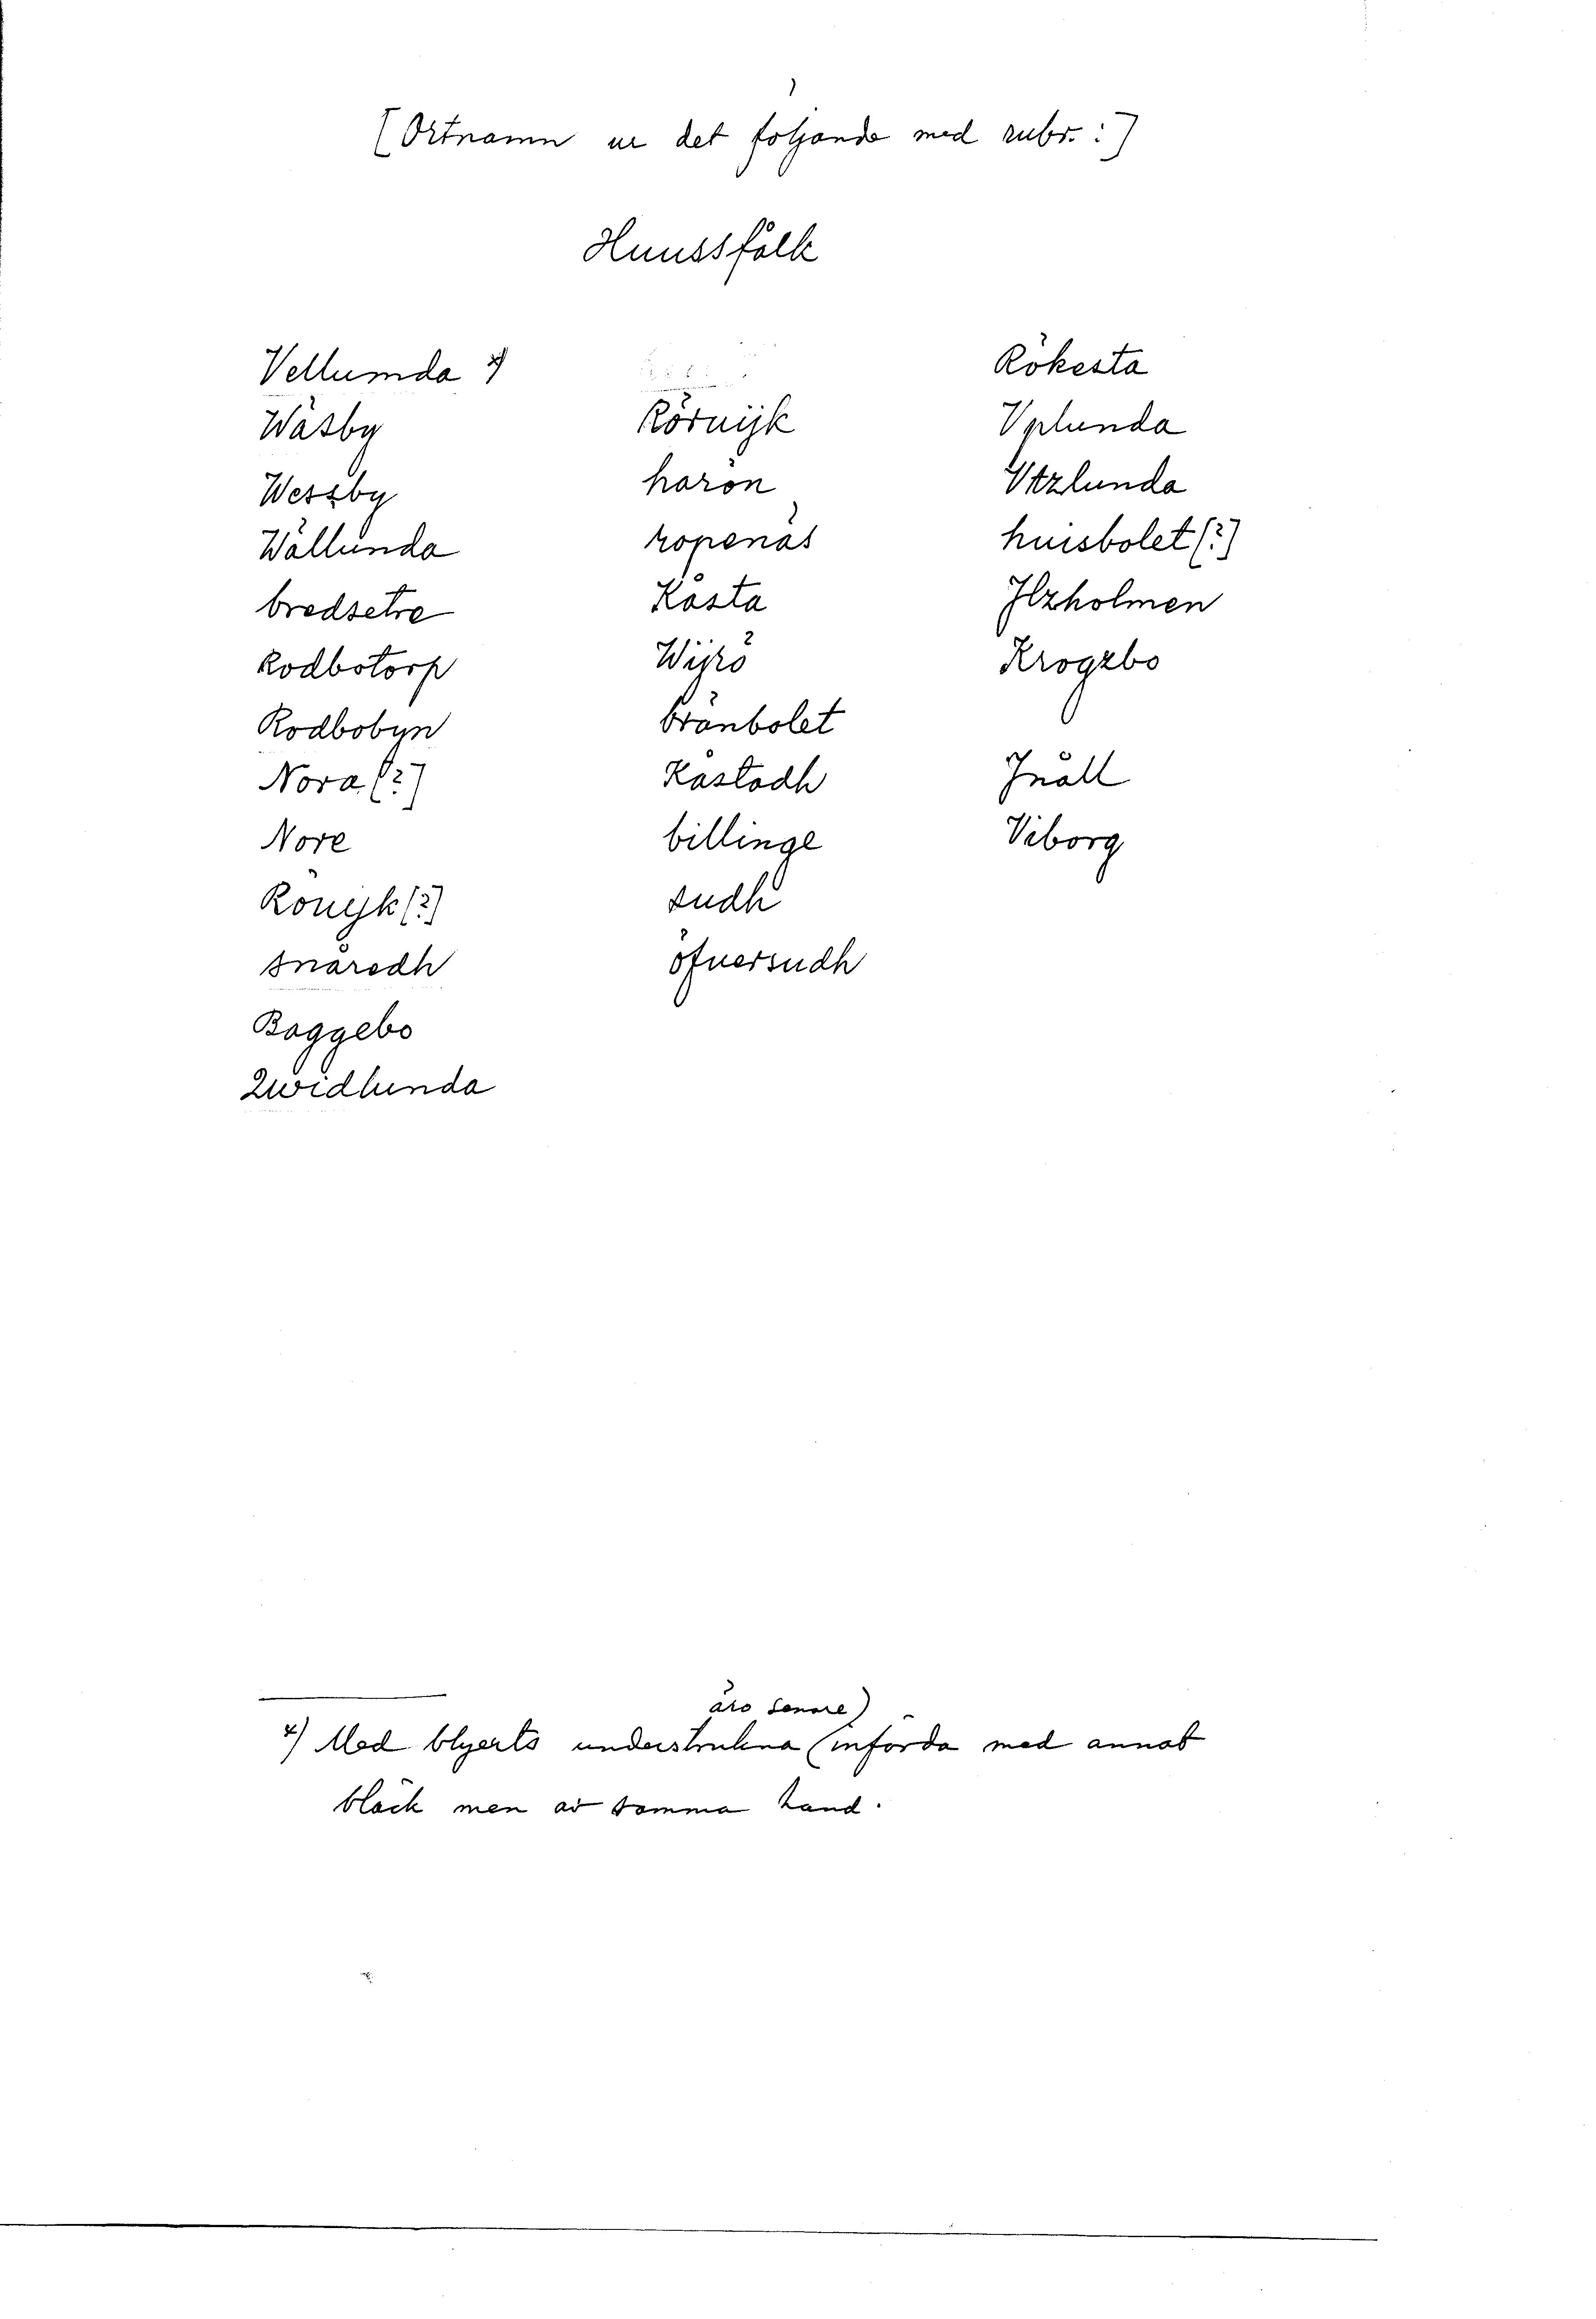 [Ortnamn ur det följande med rubr.:]
Huussfålk
Vellumda x)
Wäsby
Wessby
Wällunda
bredsetre
Rodbotorp
Rodbobyn
Nora [?]
Nore
Rönijk [?]
snåredh
Baggebo
Qwidlunda
Rörnijk
harön
ropenäs
Kåsta
Wijrö
bränbolet
Kåstadh
billinge
sudh
öfuersudh
Rökesta
Vplunda
Vtzlunda
huisbolet [?]
Jlzholmen
Krogzbo
Jnåll
Viborg
äro senare)
x) Med blyerts understrukna (införda med annat
bläck men av samma hand.